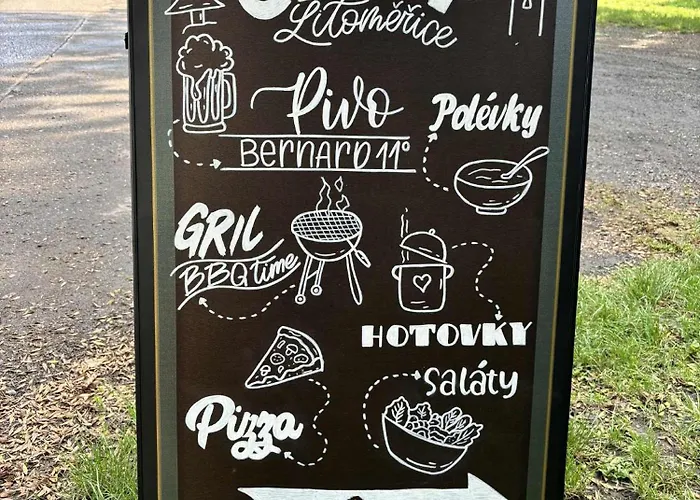 Litoměřice
Pivo
Bernard 11°
Polévky
GRIL
BBQ time
HOTOVKY
saláty
Pizza